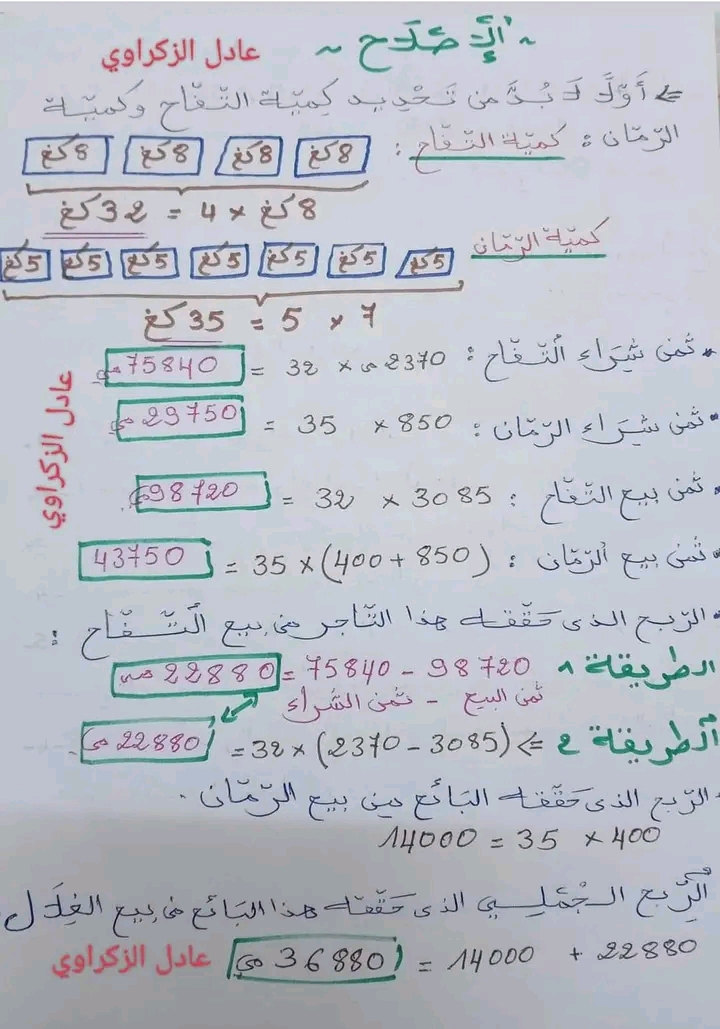 ~ الإِصْلَاح ~
عادل الزكراوي
⇐ أَوَّلًا لَا بُدَّ من تَحْدِيد كِميّة التّفّاح وكميّة
الرّمّان : كميّة التّفّاح :
8كغ 8كغ 8كغ 8كغ
8كغ × 4 = 32كغ
كميّة الرّمّان
5كغ 5كغ 5كغ 5كغ 5كغ 5كغ 5كغ
7 × 5 = 35كغ
• ثمن شِرَاء التّفّاح : 2370مي × 32 = 75840مي
عادل الزكراوي
• ثمن شِرَاء الرّمّان : 850 × 35 = 29750مي
• ثمن بيع التّفّاح : 3085 × 32 = 98720مي
• ثمن بيع الرّمّان : (850 + 400) × 35 = 43750
• الرّبح الذي حَقّقه هذا التّاجر من بيع التّفّاح :
الطريقة 1 98720 - 75840 = 22880 مي
ثمن البيع - ثمن الشّراء
الطريقة 2 ⇐ (3085 - 2370) × 32 = 22880 مي
• الرّبح الذي حَقّقه البَائع من بيع الرّمّان .
400 × 35 = 14000
الرِّبح الجُمْلِي الذي حَقّقه هذا البَائع من بيع الغِلَال
22880 + 14000 = 36880 مي
عادل الزكراوي